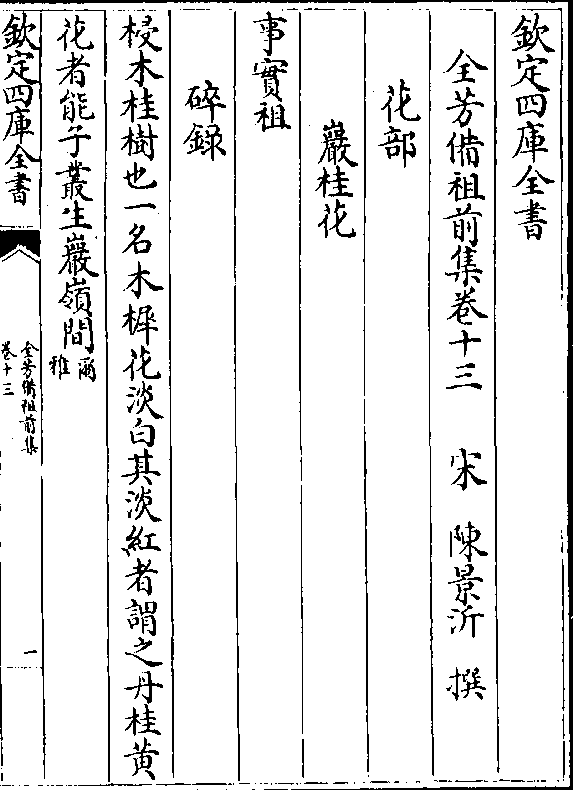 欽定四庫全書
全芳備祖前集卷十三　宋　陳景沂　撰
花部
巖桂花
事實祖
碎録
梫木桂樹也一名木樨花淡白其淡紅者謂之丹桂黄
花者能子叢生巖嶺間爾雅
欽定四庫全書
全芳備祖前集
卷十三
一